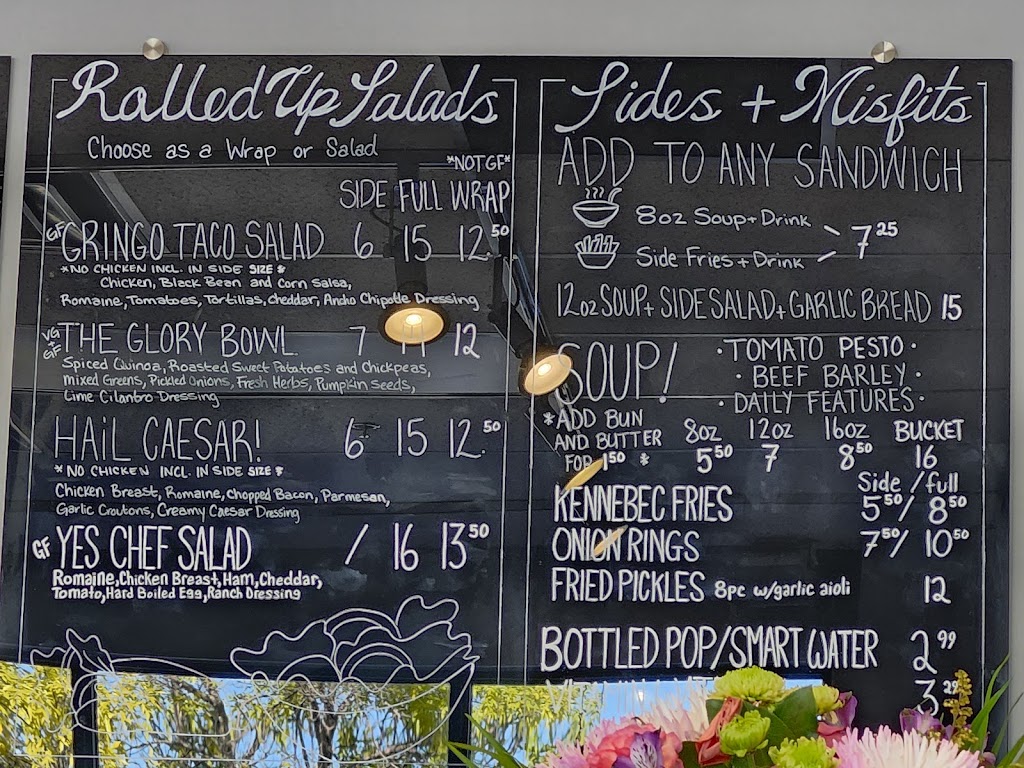 Rolled Up Salads
Choose as a Wrap or Salad
*NOT GF*
SIDE FULL WRAP
GF GRINGO TACO SALAD 6 15 12.50
*NO CHICKEN INCL. IN SIDE SIZE*
Chicken, Black Bean and Corn Salsa,
Romaine, Tomatoes, Tortillas, Cheddar, Ancho Chipotle Dressing
VG + GF THE GLORY BOWL 7 12
Spiced Quinoa, Roasted Sweet Potatoes and Chickpeas,
mixed Greens, Pickled Onions, Fresh Herbs, Pumpkin Seeds,
Lime Cilantro Dressing
HAIL CAESAR! 6 15 12.50
*NO CHICKEN INCL. IN SIDE SIZE*
Chicken Breast, Romaine, Chopped Bacon, Parmesan,
Garlic Croutons, Creamy Caesar Dressing
GF YES CHEF SALAD / 16 13.50
Romaine, Chicken Breast, Ham, Cheddar,
Tomato, Hard Boiled Egg, Ranch Dressing
Sides + Misfits
ADD TO ANY SANDWICH
8oz Soup + Drink
7.25
Side Fries + Drink
12oz SOUP + SIDE SALAD + GARLIC BREAD 15
SOUP! · TOMATO PESTO ·
· BEEF BARLEY ·
· DAILY FEATURES ·
*ADD BUN
AND BUTTER 8oz 12oz 16oz BUCKET
FOR 1.50 * 5.50 7 8.50 16
Side / full
KENNEBEC FRIES 5.50 / 8.50
ONION RINGS 7.50 / 10.50
FRIED PICKLES 8pc w/garlic aioli 12
BOTTLED POP/SMART WATER 2.99
3.29